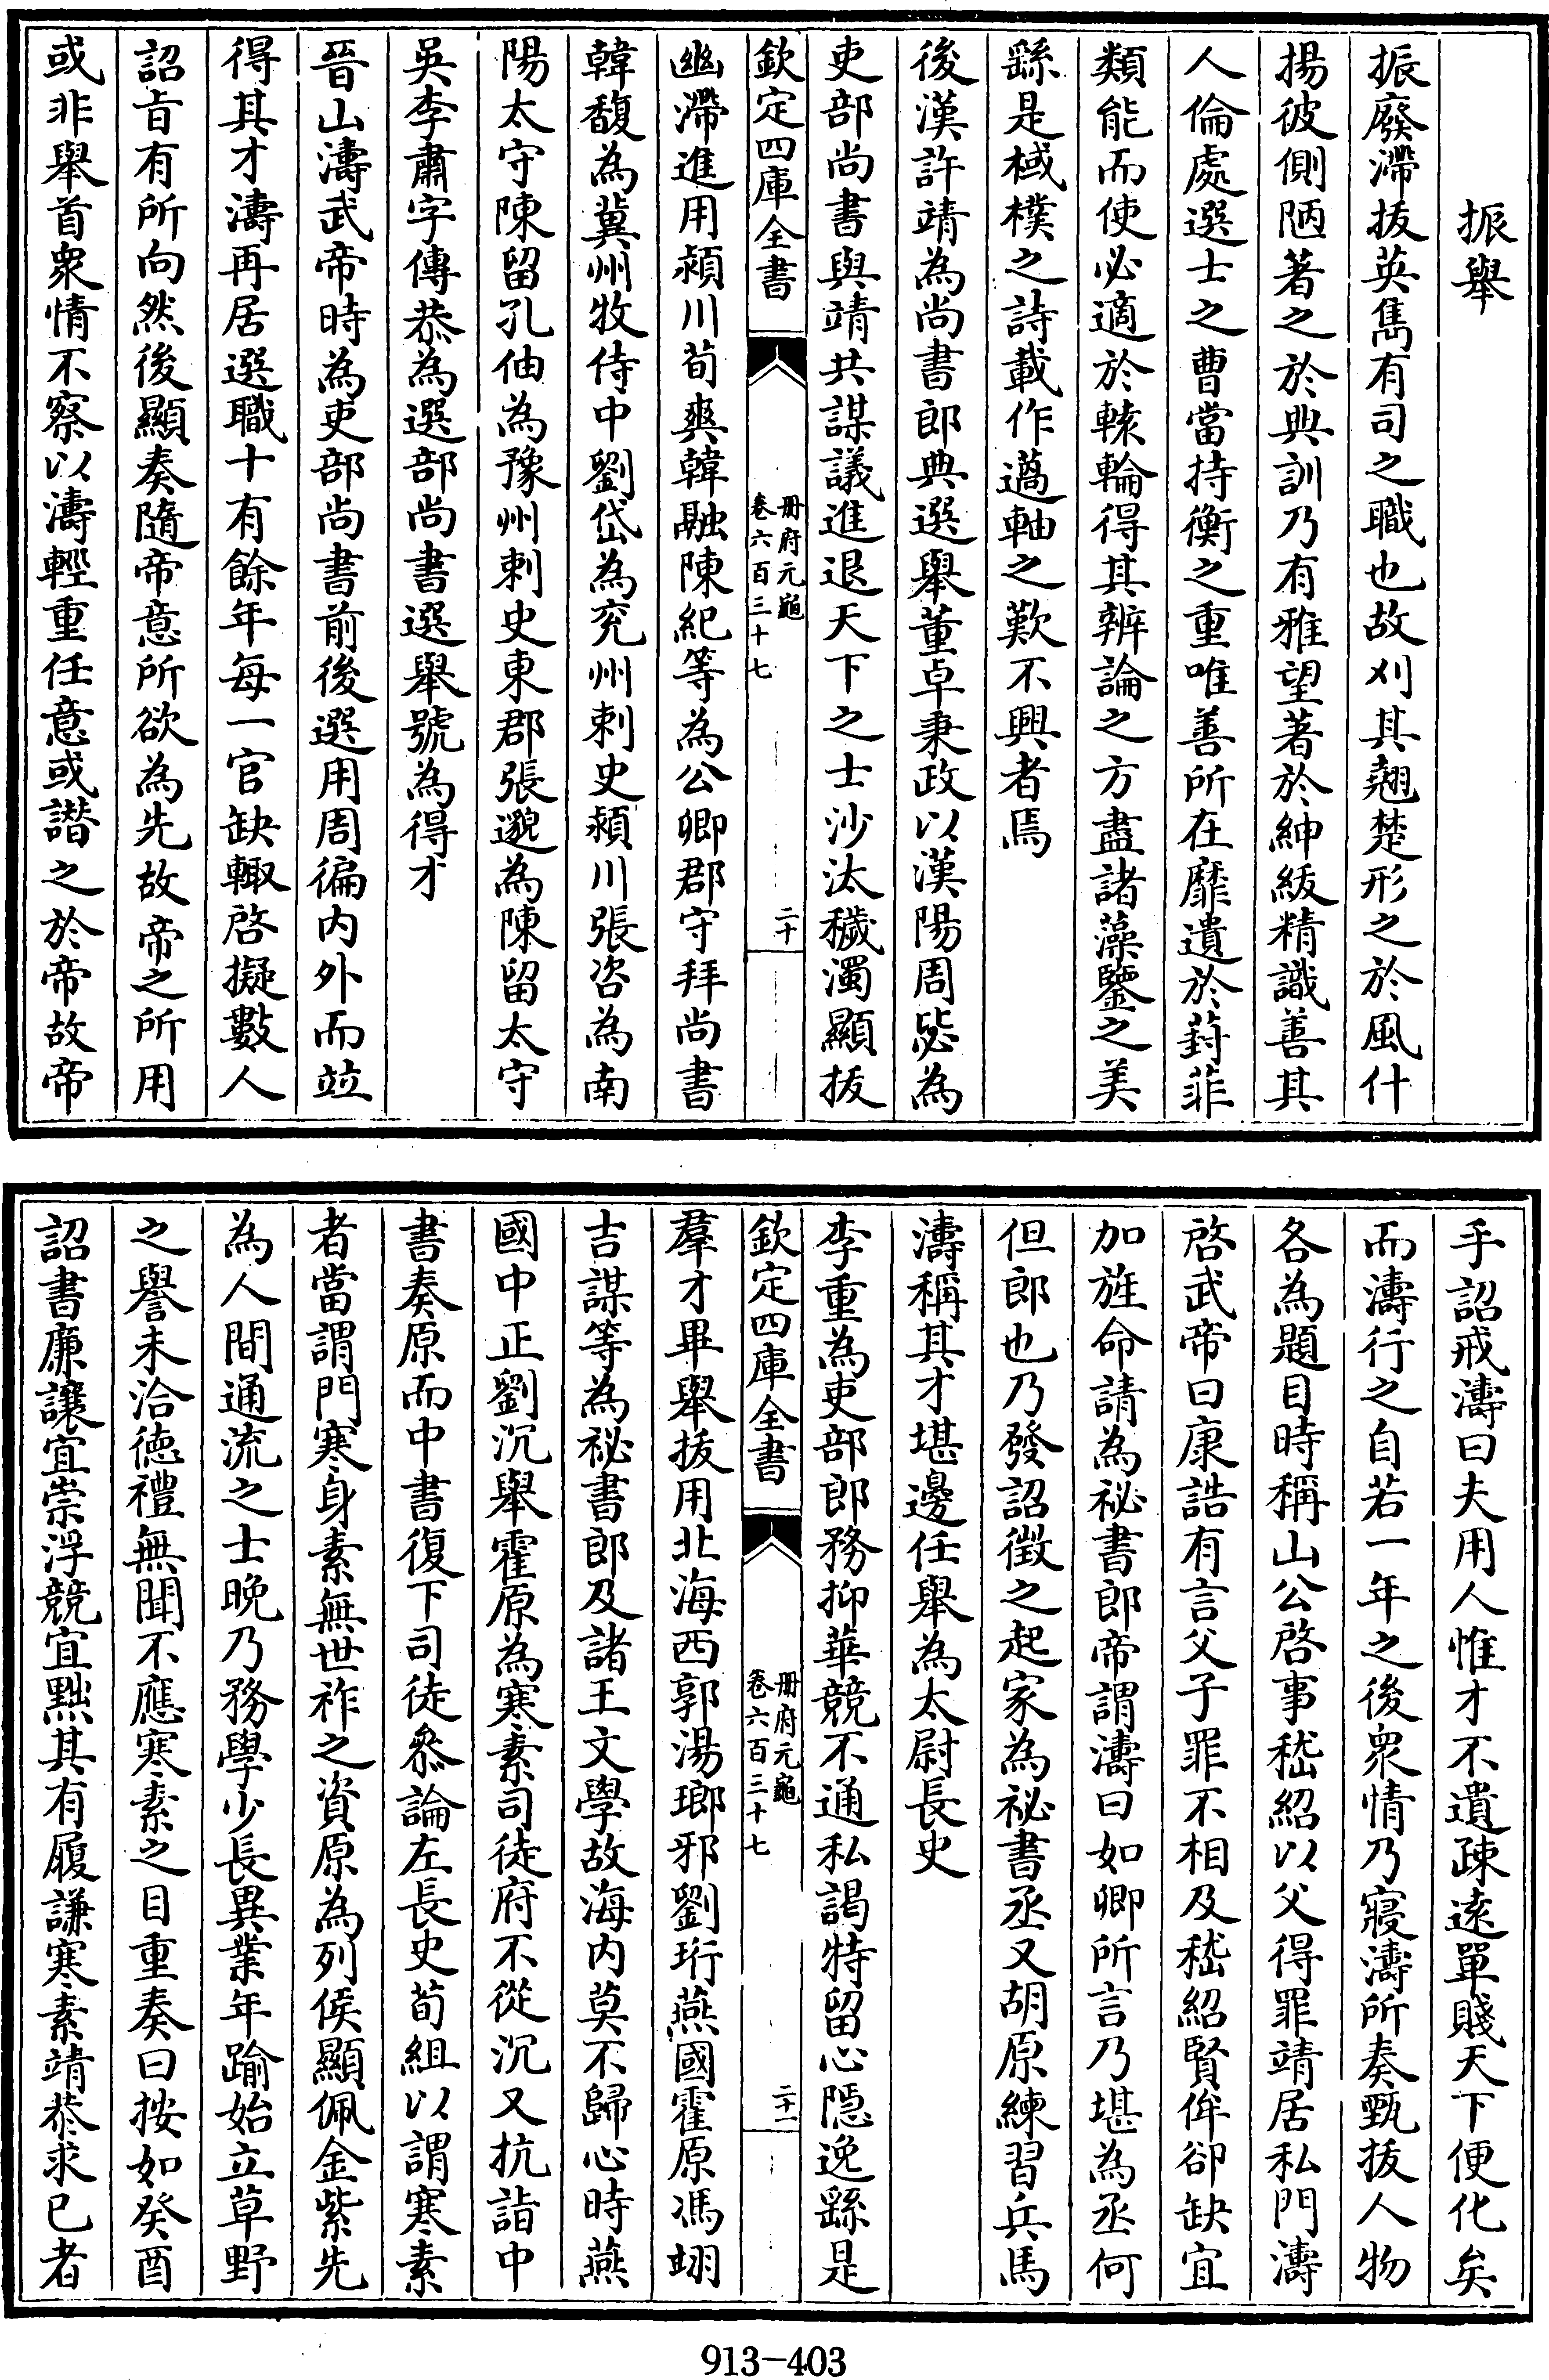 振舉
振廢滯拔英雋有司之職也故刈其翹楚形之於風什
揚彼側陋著之於典訓乃有雅望著於紳紱精識善其
人倫處選士之曹當持衡之重唯善所在靡遺於葑菲
類能而使必適於轅輪得其辨論之方盡諸藻鑒之美
繇是棫樸之詩載作薖軸之歎不興者焉
後漢許靖為尚書郎典選舉董卓秉政以漢陽周毖為
吏部尚書與靖共謀議進退天下之士沙汰穢濁顯拔
欽定四庫全書
冊府元龜
卷六百三十七
二十
幽滯進用潁川荀爽韓融陳紀等為公卿郡守拜尚書
韓馥為冀州牧侍中劉岱為兖州刺史潁川張咨為南
陽太守陳留孔伷為豫州刺史東郡張邈為陳留太守
吳李肅字傳恭為選部尚書選舉號為得才
晉山濤武帝時為吏部尚書前後選用周徧內外而竝
得其才濤再居選職十有餘年每一官缺輙啓擬數人
詔旨有所向然後顯奏隨帝意所欲為先故帝之所用
或非舉首衆情不察以濤輕重任意或譖之於帝故帝
手詔戒濤曰夫用人惟才不遺疎遠單賤天下便化矣
而濤行之自若一年之後衆情乃寢濤所奏甄拔人物
各為題目時稱山公啓事嵇紹以父得罪靖居私門濤
啓武帝曰康誥有言父子罪不相及嵇紹賢侔卻缺宜
加旌命請為祕書郎帝謂濤曰如卿所言乃堪為丞何
但郎也乃發詔徵之起家為祕書丞又胡原練習兵馬
濤稱其才堪邊任舉為太尉長史
李重為吏部郎務抑華競不通私謁特留心隱逸繇是
欽定四庫全書
冊府元龜
卷六百三十七
二十一
羣才畢舉拔用北海西郭湯瑯邪劉珩燕國霍原馮翊
吉謀等為祕書郎及諸王文學故海內莫不歸心時燕
國中正劉沉舉霍原為寒素司徒府不從沉又抗詣中
書奏原而中書復下司徒叅論左長史荀組以謂寒素
者當謂門寒身素無世祚之資原為列侯顯佩金紫先
為人間通流之士晚乃務學少長異業年踰始立草野
之譽未洽德禮無聞不應寒素之目重奏曰按如癸酉
詔書廉讓宜崇浮競宜黜其有履謙寒素靖恭求已者
913-403